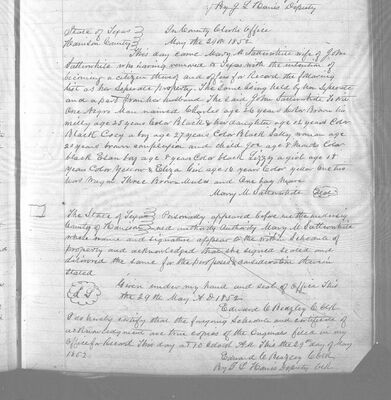 By J L Hanis Deputy
State of Texas } In County Clerks Office
Harrison County } May the 29th 1852
This day came Mary M Satterwhite wife of John
Satterwhite who having removed to Texas with the intention of
becoming a citizen thereof and offers for Record the following
list as her Seperate Property. The Same being held by her Seperate
and apart from her husband The Said John Satterwhite To Wit
One Negro Man named Charles age 26 years Color Brown his
milly age 25 years Color Black & her daughter age 12 years Color
Black Cocy a boy age 27 years Color Black Salley woman age
20 years brown complexion and child Joe age 8 months Color
black Edan boy age 8 years Color black Lizzy a girl age 18
years Color Yellow & Eliza Girl age 16 years Color yellow One two
hors Wagon Three Brown Mules and One bay Mare
Mary M. Satterwhite Seal
The State of Texas } Personally appeared before me the undersig
County of Harrison } ned authority Mary M. Satterwhite
whose name and signature appear to the within Schedule of
property and acknowledged that she signed Sealed and
delivered the same for the purposes & consideration therein
stated
L S Given under my hand and seal of Office This
the 29th May A.D. 1852.
Edward C Beazley C Clk
I do hereby certify that the foregoing Schedule and certificate of
acknowledgment are true copies of the Originals filed in my
Office for Record This day at 10 Oclock A.M. This the 29th day of May
1852.
Edward C Beazley C Clk
By J L Hanis Deputy Clk